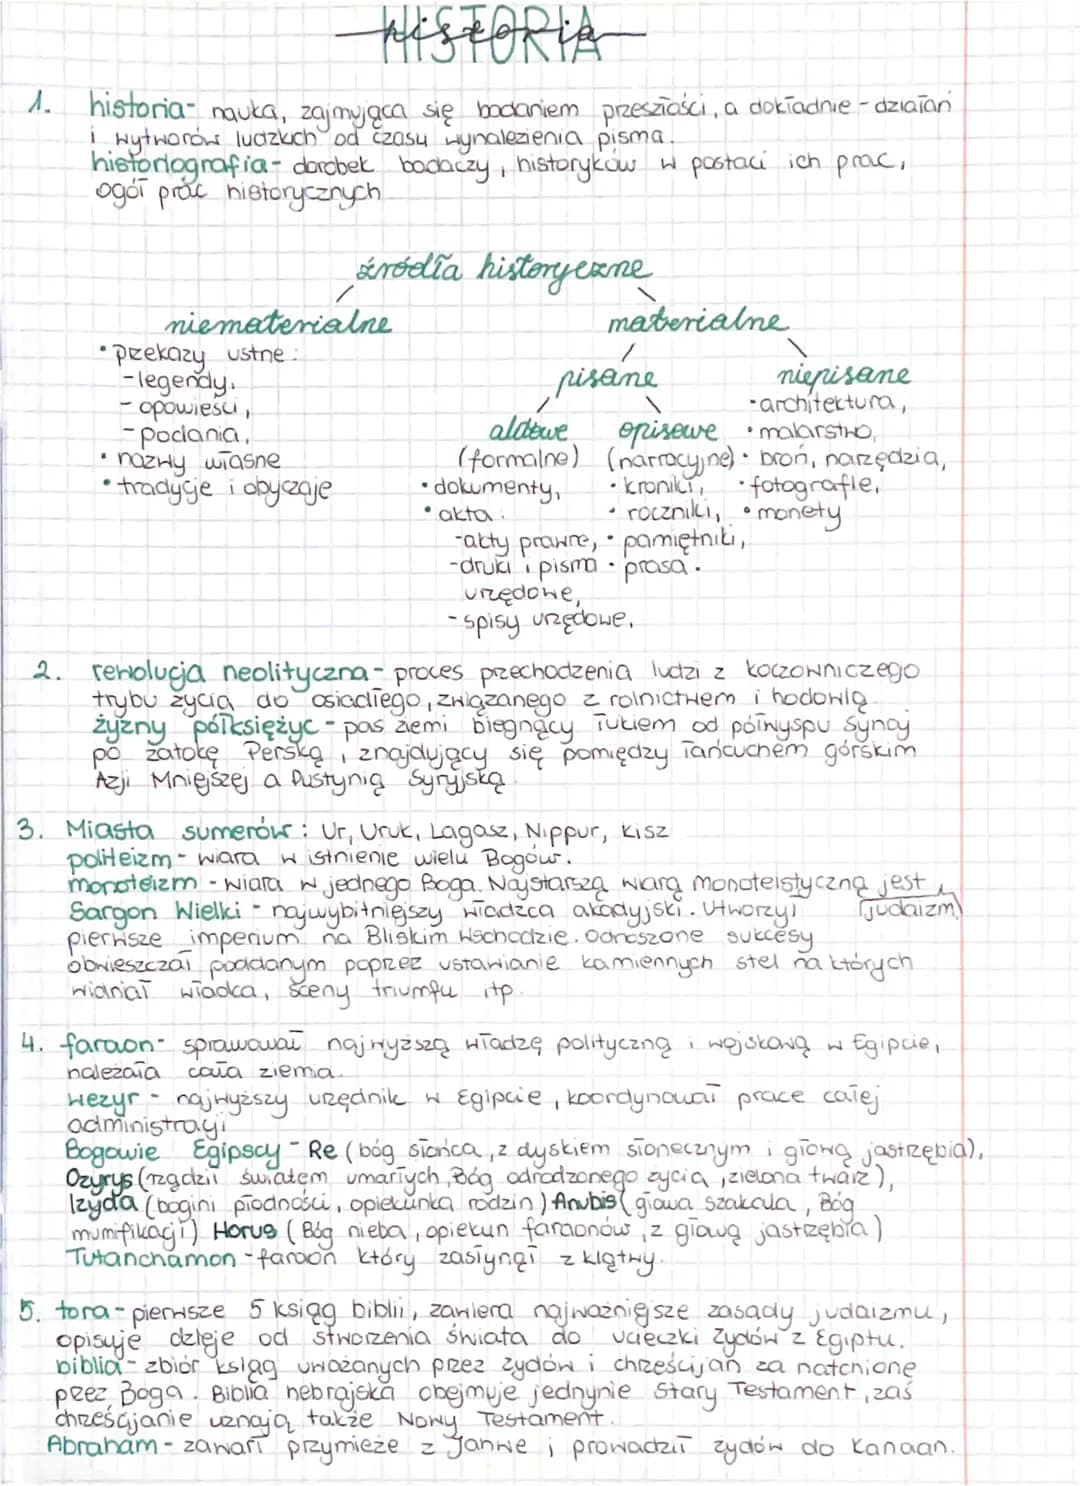 HISTORIA
historia
1. historia- nauka, zajmująca się badaniem przeszłości, a dokładnie - działań
i wytworów ludzkich od czasu wynalezienia pisma.
historiografia- dorobek badaczy, historyków w postaci ich prac,
ogół prac historycznych
źródła historyczne
niematerialne
materialne
• przekazy ustne:
-legendy,
- opowieści,
-podania,
• nazwy własne
• tradycje i obyczaje
pisane
niepisane
aktowe
(formalne)
• dokumenty,
• akta:
-akty prawne,
-druki i pisma
urzędowe,
- spisy urzędowe,
opisowe
(narracyjne)
• kroniki,
• roczniki,
• pamiętniki,
• prasa.
•architektura,
• malarstwo,
• broń, narzędzia,
• fotografie,
• monety
2. rewolucja neolityczna- proces przechodzenia ludzi z koczowniczego
trybu życia do osiadłego, związanego z rolnictwem i hodowlą
żyzny półksiężyc - pas ziemi biegnący łukiem od półwyspu Synaj
po zatokę Perską, znajdujący się pomiędzy łańcuchem górskim
Azji Mniejszej a Pustynią Syryjską.
3. Miasta sumerów: Ur, Uruk, Lagasz, Nippur, Kisz
politeizm- wiara w istnienie wielu Bogów.
monoteizm - wiara w jednego Boga. Najstarszą wiarą monoteistyczną jest
judaizm
Sargon Wielki - najwybitniejszy władzca akadyjski. Utworzył
pierwsze imperium na Bliskim Wschodzie. Odnoszone sukcesy
obwieszczał poddanym poprzez ustawianie kamiennych stel na których
widniał władca, sceny triumfu itp.
4. faraon- sprawował najwyższą władzę polityczną i wojskową w Egipcie,
należała cała ziemia.
wezyr - najwyższy urzędnik w Egipcie, koordynował prace całej
administracji
Bogowie Egipscy - Re (bóg słońca, z dyskiem słonecznym i głową jastrzębia),
Ozyrys (rządził światem umarłych, Bóg odrodzonego życia, zielona twarz),
Izyda (bogini płodności, opiekunka rodzin) Anubis (głowa szakala, Bóg
mumifikacji) Horus (Bóg nieba, opiekun faraonów, z głową jastrzębia)
Tutanchamon -faraon który zasłynął z klątwy.
5. tora- pierwsze 5 ksiąg biblii, zawiera najważniejsze zasady judaizmu,
opisuje dzieje od stworzenia świata do ucieczki Żydów z Egiptu.
biblia- zbiór ksiąg uważanych przez żydów i chrześcijan za natchione
przez Boga. Biblia hebrajska obejmuje jednynie Stary Testament, zaś
chrześcijanie uznają także Nowy Testament.
Abraham- zawarł przymieże z Jahwe i prowadził żydów do Kanaan.